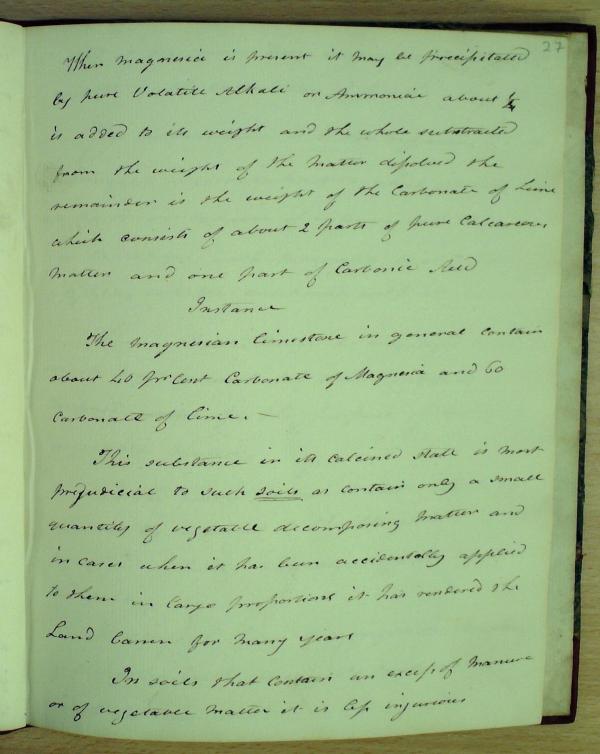 27
When magnesia is present it may be precipitated
by pure Volatile Alkali or Ammoniac about 1/4
is added to its weight and the whole substracted
from the weight of the matter dissolved the
remainder is the weight of the Carbonate of Lime
which consists of about 2 parts of pure Calcareous
matter and one part of Carbonic Acid
Instance
The magnesian limestone in general contain
about 40 pr Cent Carbonate of Magnesia and 60
Carbonate of lime. –
This substance in its calcined state is most
prejudicial to such soils as contain only a small
quantity of vegetable decomposing matter and
in cases when it has been accidentally applied
to them in large proportions it has rendered the
Land barren for many years
In soils that contain an excess of manure
or of vegetable matter it is less injurious